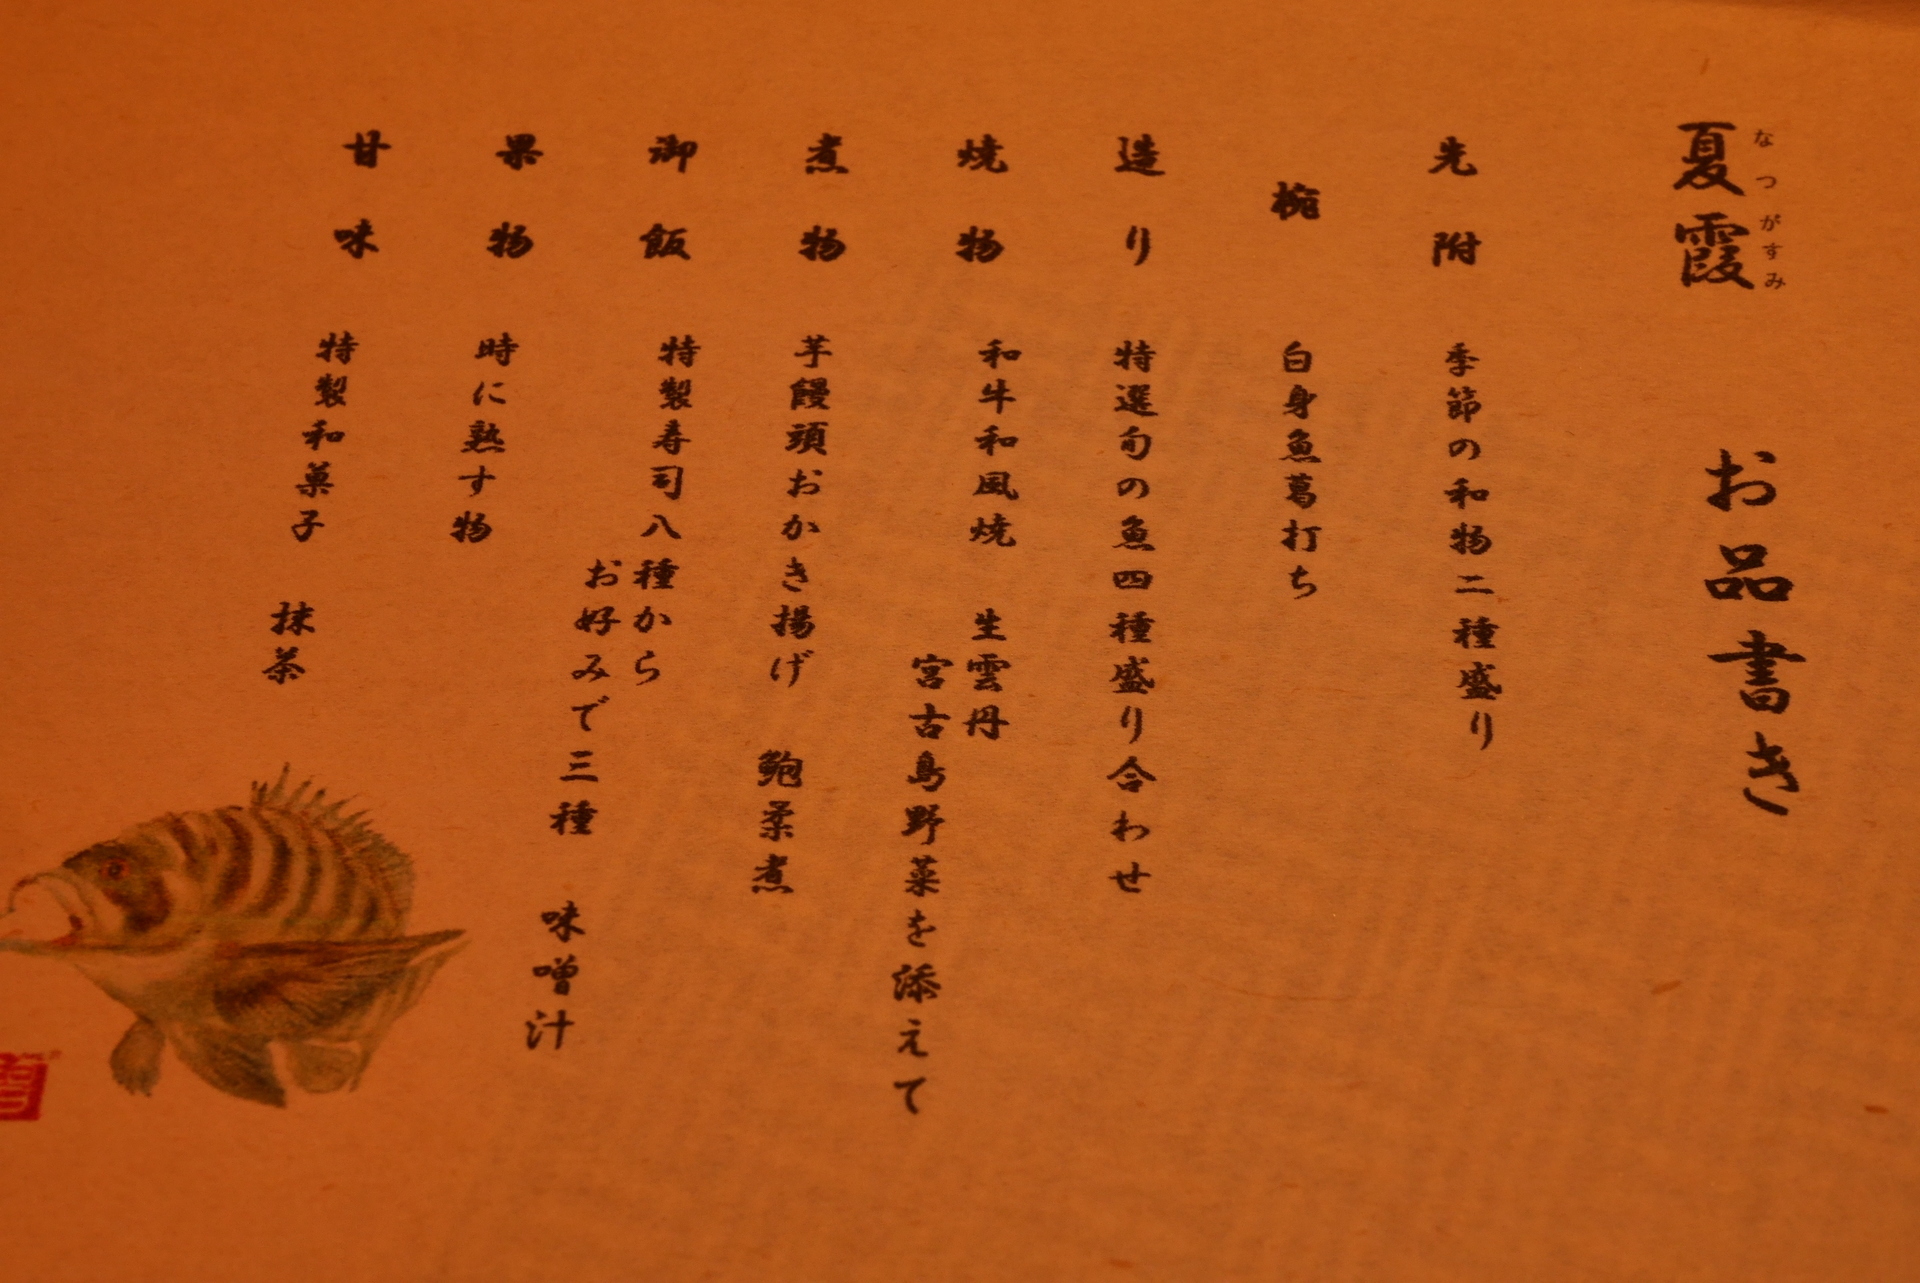 夏霞 お品書き
なつがすみ
先附 季節の和物二種盛り
椀 白身魚葛打ち
造り 特選旬の魚四種盛り合わせ
焼物 和牛和風焼 生雲丹
宮古島野菜を添えて
煮物 芋饅頭おかき揚げ 鮑柔煮
御飯 特製寿司八種から
お好みで三種 味噌汁
果物 時に熟す物
甘味 特製和菓子 抹茶